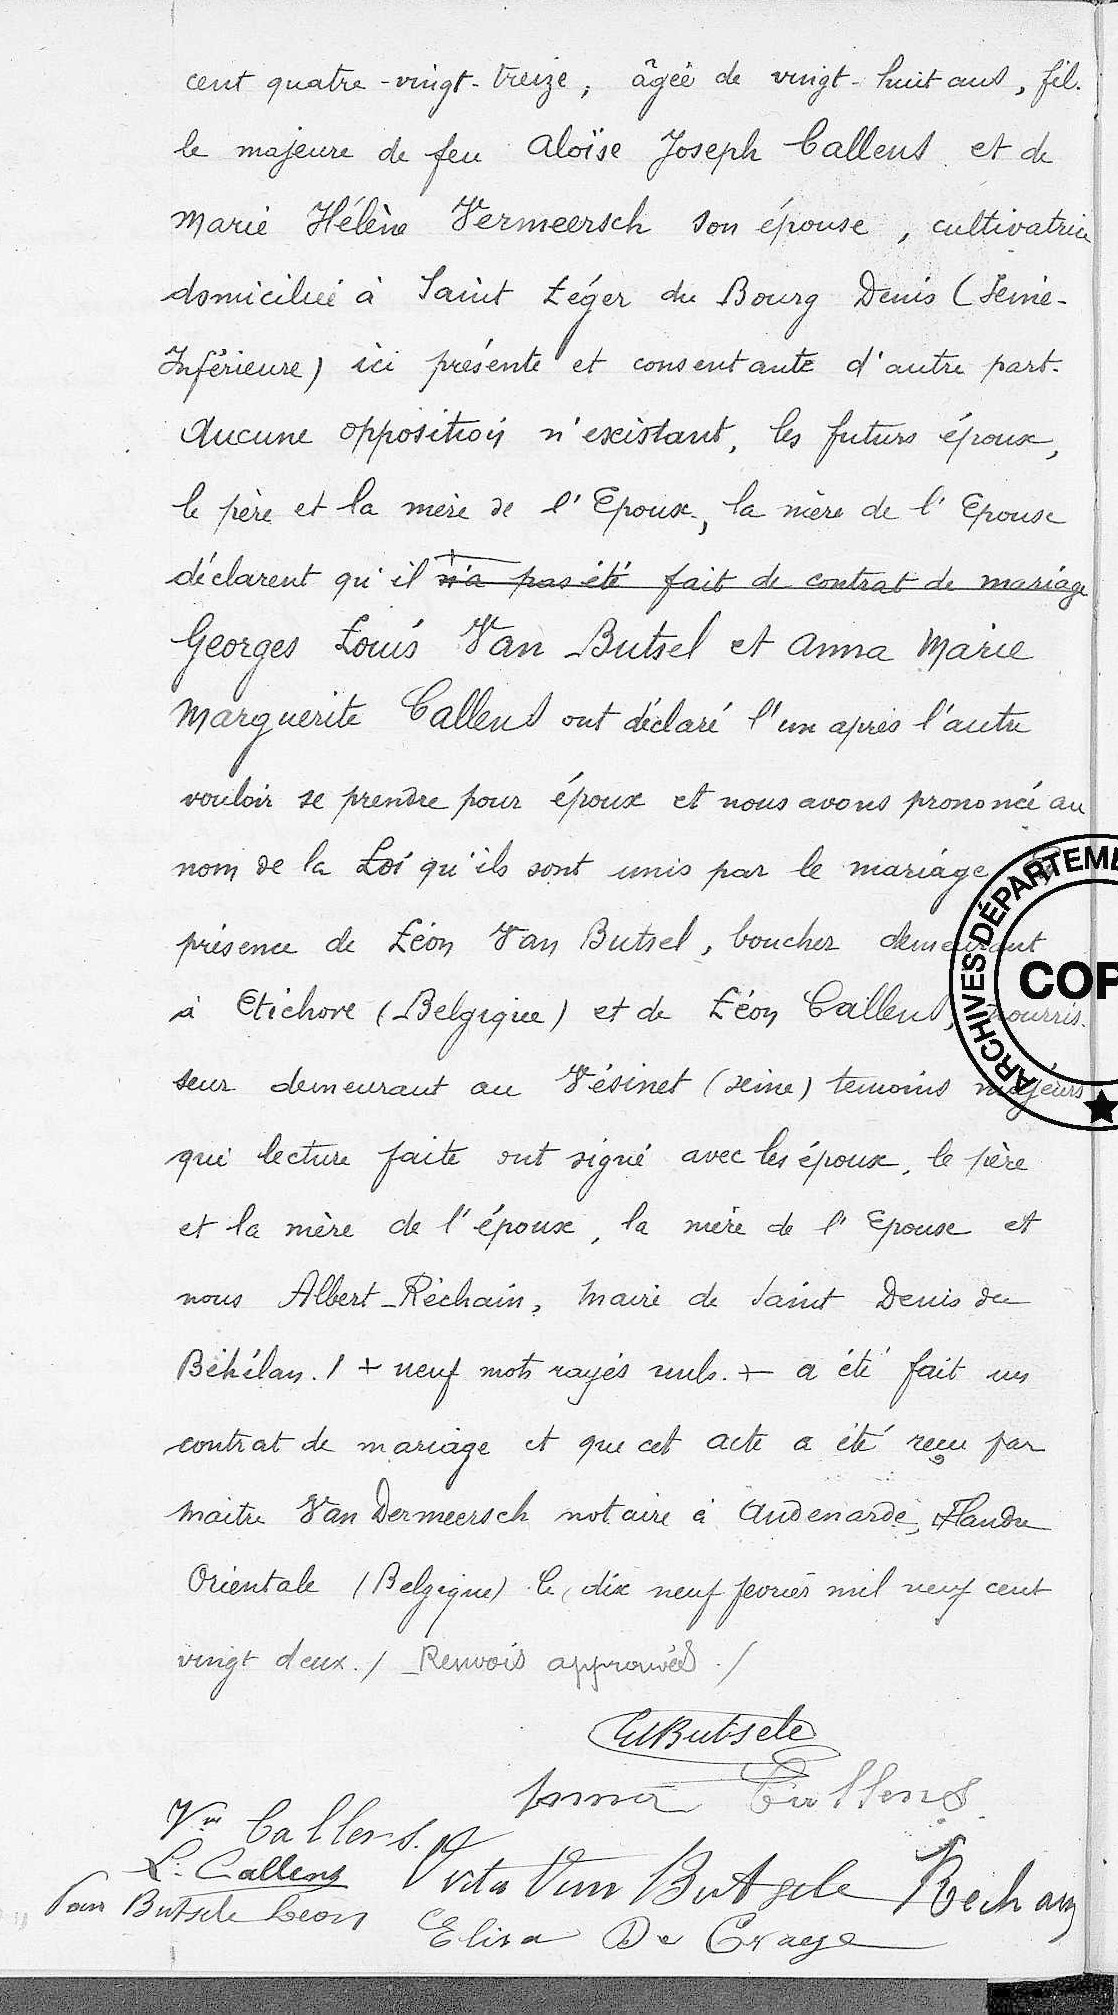 cent quatre-vingt-treize, âgée de vingt-huit ans, fil-
le majeure de feu Aloïse Joseph Callens et de
Marie Hélène Vermeersch son épouse, cultivatrice
domiciliée à Saint Léger du Bourg Denis (Seine-
Inférieure) ici présente et consentante d'autre part.
Aucune opposition n'existant, les futurs époux,
le père et la mère de l'Epoux, la mère de l'Epouse
déclarent qu'il + n'a pas été fait de contrat de mariage
Georges Louis Van Butsel et Anna Marie
Marguerite Callens ont déclaré l'un après l'autre
vouloir se prendre pour époux et nous avons prononcé au
nom de la Loi qu'ils sont unis par le mariage en
présence de Léon Van Butsel, boucher demeurant
à Etichove (Belgique) et de Léon Callens, nourris-
seur demeurant au Vésinet (Seine) temoins majeurs
qui lecture faite ont signé avec les époux, le père
et la mère de l'époux, la mère de l'Epouse et
nous Albert Réchain, Maire de Saint Denis du
Béhélan. / + neuf mots rayés nuls. + a été fait un
contrat de mariage et que cet acte a été reçu par
Maitre Van Dermeersch notaire à Audenarde, Flandre
Orientale (Belgique) le dix neuf février mil neuf cent
vingt deux. / Renvois approuvés. /
Butsele
Anna Callens
Vve Callens.
L. Callens Van Butsele Rechain
Van Butsele Leon
Elisa De Craeye
ARCHIVES DÉPARTEME
COP